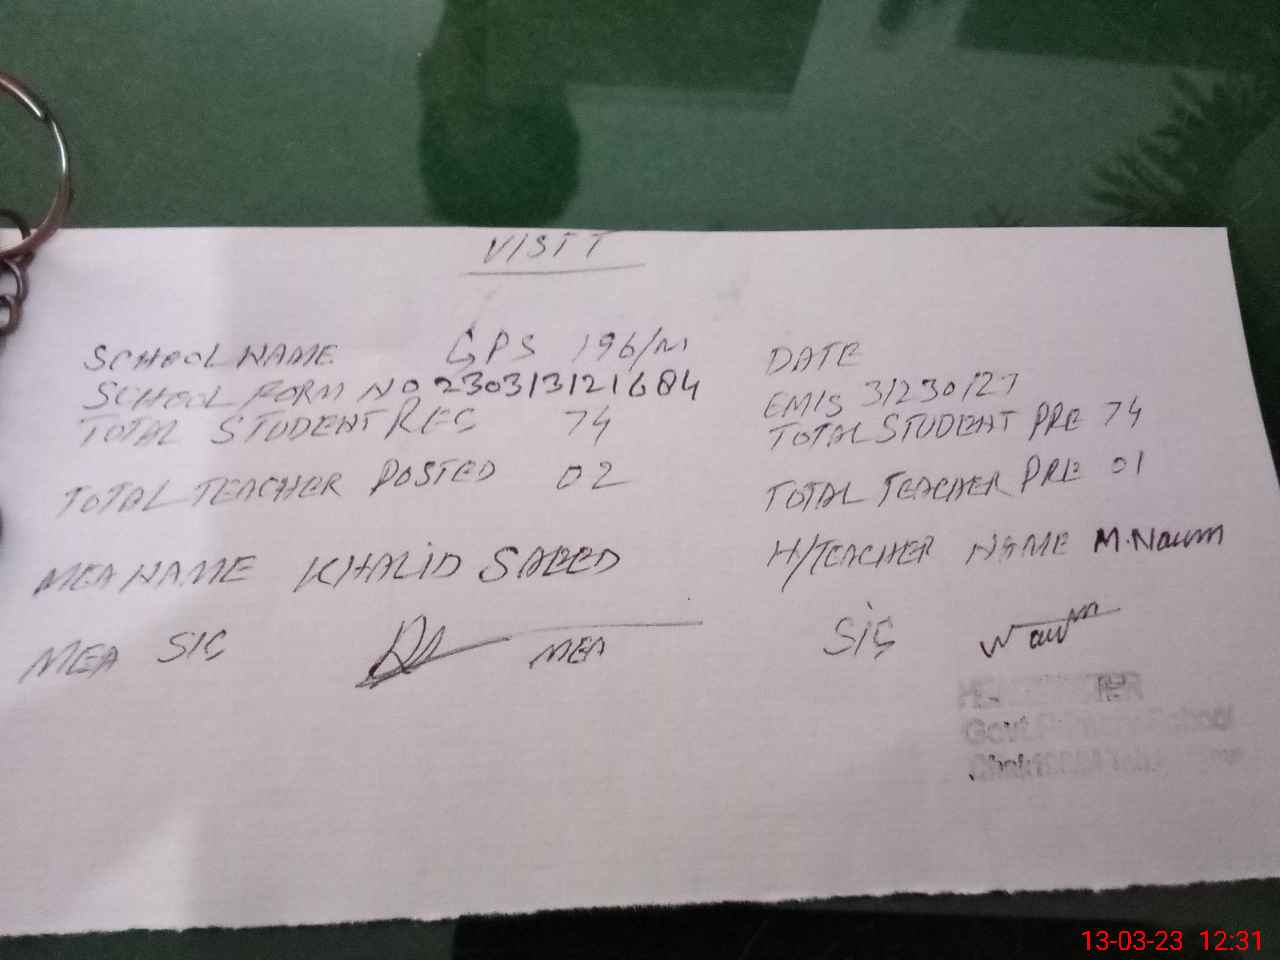 VISIT
SCHOOL NAME GPS 196/M DATE
SCHOOL FORM NO 230313121684 EMIS 31230127
TOTAL STUDENT REG 74 TOTAL STUDENT PRE 74
TOTAL TEACHER POSTED 02 TOTAL TEACHER PRE 01
MEA NAME KHALID SAEED H/TEACHER NAME M.Naeem
MEA SIG MEA SIG
Govt. Primary School
13-03-23 12:31